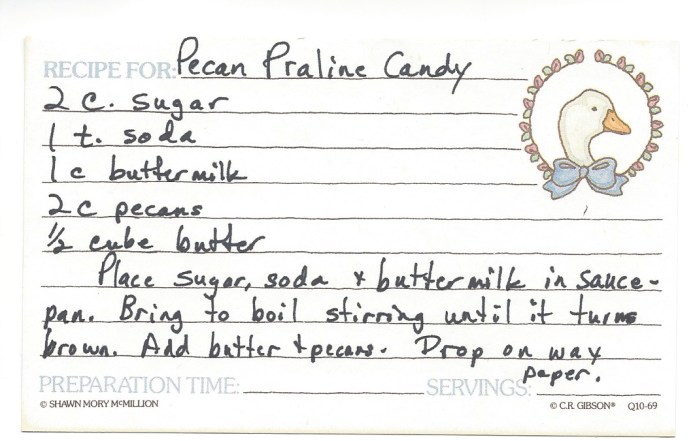 RECIPE FOR: Pecan Praline Candy
2 c. sugar
1 t. soda
1 c buttermilk
2 c pecans
½ cube butter
Place sugar, soda & buttermilk in sauce-
pan. Bring to boil stirring until it turns
brown. Add butter & pecans. Drop on way
paper.
PREPARATION TIME: SERVINGS:
© SHAWN MORY McMILLION © C.R. GIBSON® Q10-69